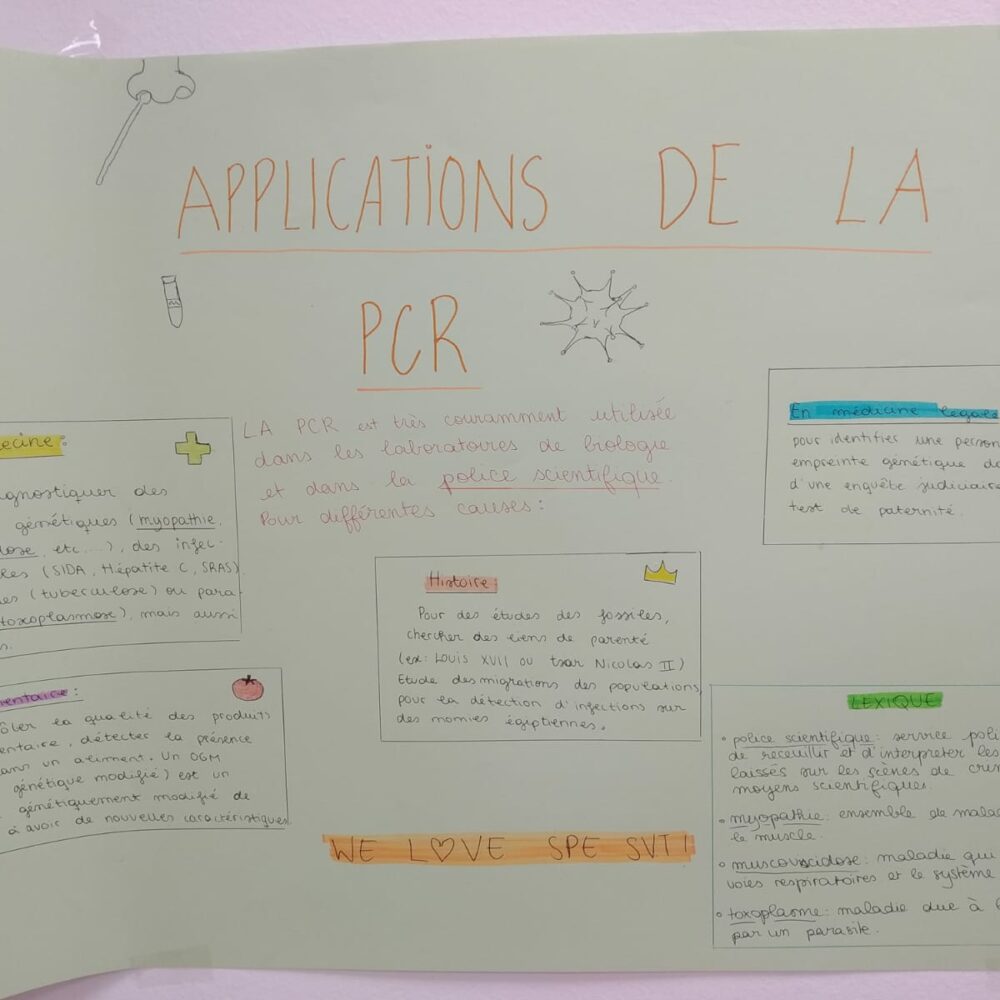 APPLICATIONS DE LA
PCR
LA PCR est très couramment utilisée
dans les laboratoires de biologie
et dans la police scientifique.
Pour différentes causes :
ecine :
agnostiquer des
génétiques (myopathie,
dose, etc...), des infec-
les (SIDA, Hépatite C, SRAS)
es (tuberculose) ou para-
toxoplasmose), mais aussi
s.
mentaire :
ôler la qualité des produits
entaire, détecter la présence
ans un aliment. Un OGM
génétique modifié) est un
génétiquement modifié de
à avoir de nouvelles caractéristiques
Histoire :
Pour des études des fossiles,
chercher des liens de parenté
(ex : Louis XVII ou tsar Nicolas II)
Etude des migrations des populations,
pour la détection d'infections sur
des momies égiptiennes.
WE L♡VE SPE SVT !
En médicine legale
pour identifier une person
empreinte génétique de
d'une enquête judiciaire
test de paternité.
LEXIQUE
• police scientifique : service poli
de receuillir et d'interpreter les
laissés sur les scènes de crim
moyens scientifiques.
• myopathie : ensemble de malad
le muscle.
• muscoviscidose : maladie qui
voies respiratoires et le système
• toxoplasme : maladie due à l
par un parasite.